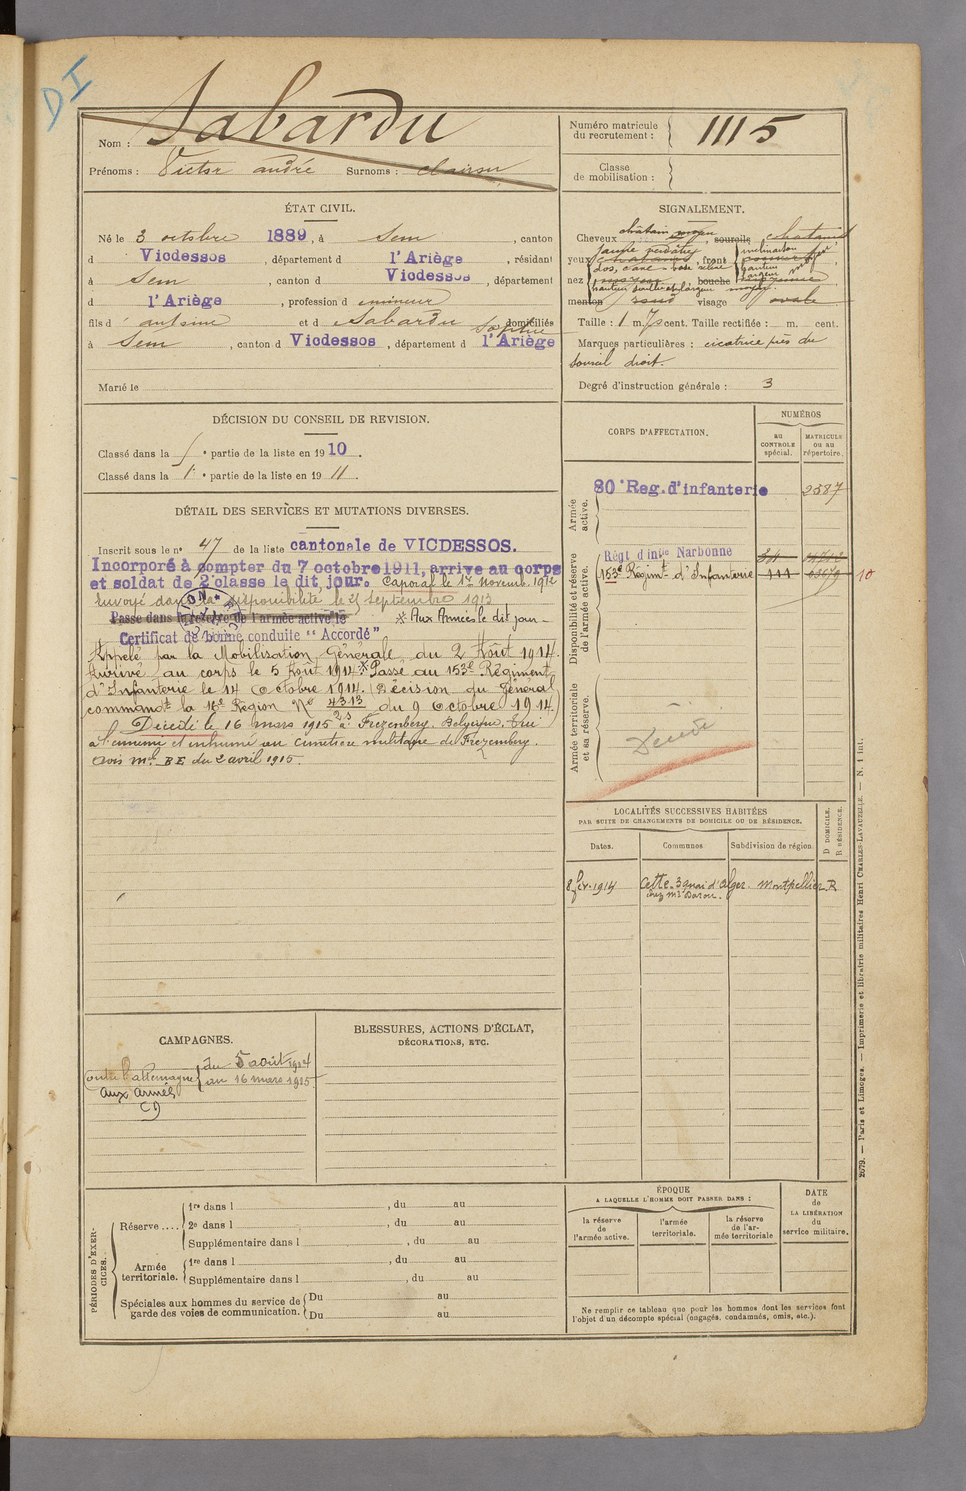 DI
Nom : Sabardu
Prénoms : Victor andré Surnoms :
Numéro matricule
du recrutement : 1115
Classe
de mobilisation :
ÉTAT CIVIL.
Né le 3 octobre 1889, à Sem, canton
d Vicdessos, département d l'Ariège, résidant
à Sem, canton d Vicdessos, département
d l'Ariège, profession d mineur
fils d antoine et d Sabardu Sophie domiciliés
à Sem, canton d Vicdessos, département d l'Ariège
Marié le
SIGNALEMENT.
Cheveux châtain moyen, sourcils chatains
yeux jaune verdâtre, front inclinaison
nez dos, base bouche hauteur largeur
menton rond visage ovale
Taille : 1 m. 70 cent. Taille rectifiée : m. cent.
Marques particulières : cicatrice près du
sourcil droit.
Degré d'instruction générale : 3
DÉCISION DU CONSEIL DE REVISION.
Classé dans la 5e partie de la liste en 1910.
Classé dans la 1e partie de la liste en 1911.
DÉTAIL DES SERVICES ET MUTATIONS DIVERSES.
Inscrit sous le n° 47 de la liste cantonale de VICDESSOS.
Incorporé à compter du 7 octobre 1911, arrive au corps
et soldat de 2e classe le dit jour. Caporal le 17 Novemb. 1912
Envoyé dans la disponibilité le 25 Septembre 1913
Passé dans la réserve de l'armée active le * Aux Armées le dit jour -
Certificat de bonne conduite "Accordé"
Appelé par la Mobilisation Générale du 2 Août 1914.
Arrivé au corps le 5 Août 1914 * Passé au 153e Régiment
d'Infanterie le 14 Octobre 1914. (Décision du Général
command't la 16e Région N° 4313/2.S du 9 Octobre 1914)
Décédé le 16 mars 1915 à Frezenberg. Belgique. Tué
à l'ennemi et inhumé au cimetière militaire de Frezemberg.
avis ml BE du 2 avril 1915.
CORPS D'AFFECTATION.
NUMÉROS
au
CONTROLE
spécial.
MATRICULE
ou au
répertoire.
Armée
active.
80e Reg. d'infanterie 2587
Disponibilité et réserve
de l'armée active.
Régt d'infie Narbonne
153e Régimt d'Infanterie 10
Armée territoriale
et sa réserve.
Décédé
LOCALITÉS SUCCESSIVES HABITÉES
PAR SUITE DE CHANGEMENTS DE DOMICILE OU DE RÉSIDENCE.
Dates. Communes Subdivision de région. D DOMICILE. R RÉSIDENCE.
8 fév. 1914 Cette. 3 quai d'Alger. Montpellier R
chez Mr
CAMPAGNES.
Contre l'allemagne du 5 août 1914
au 16 mars 1915
aux armées
BLESSURES, ACTIONS D'ÉCLAT,
DÉCORATIONS, ETC.
PÉRIODES D'EXERCICES.
Réserve .... 1re dans l , du au
2e dans l , du au
Supplémentaire dans l , du au
Armée
territoriale. 1re dans l , du au
Supplémentaire dans l , du au
Spéciales aux hommes du service de
garde des voies de communication. Du au
Du au
ÉPOQUE
A LAQUELLE L'HOMME DOIT PASSER DANS :
la réserve
de
l'armée active.
l'armée
territoriale.
la réserve
de l'armée territoriale
DATE
de
LA LIBÉRATION
du
service militaire.
Ne remplir ce tableau que pour les hommes dont les services font
l'objet d'un décompte spécial (engagés, condamnés, omis, etc.).
2679. — Paris et Limoges. — Imprimerie et librairie militaires Henri CHARLES-LAVAUZELLE. — N. 1 int.